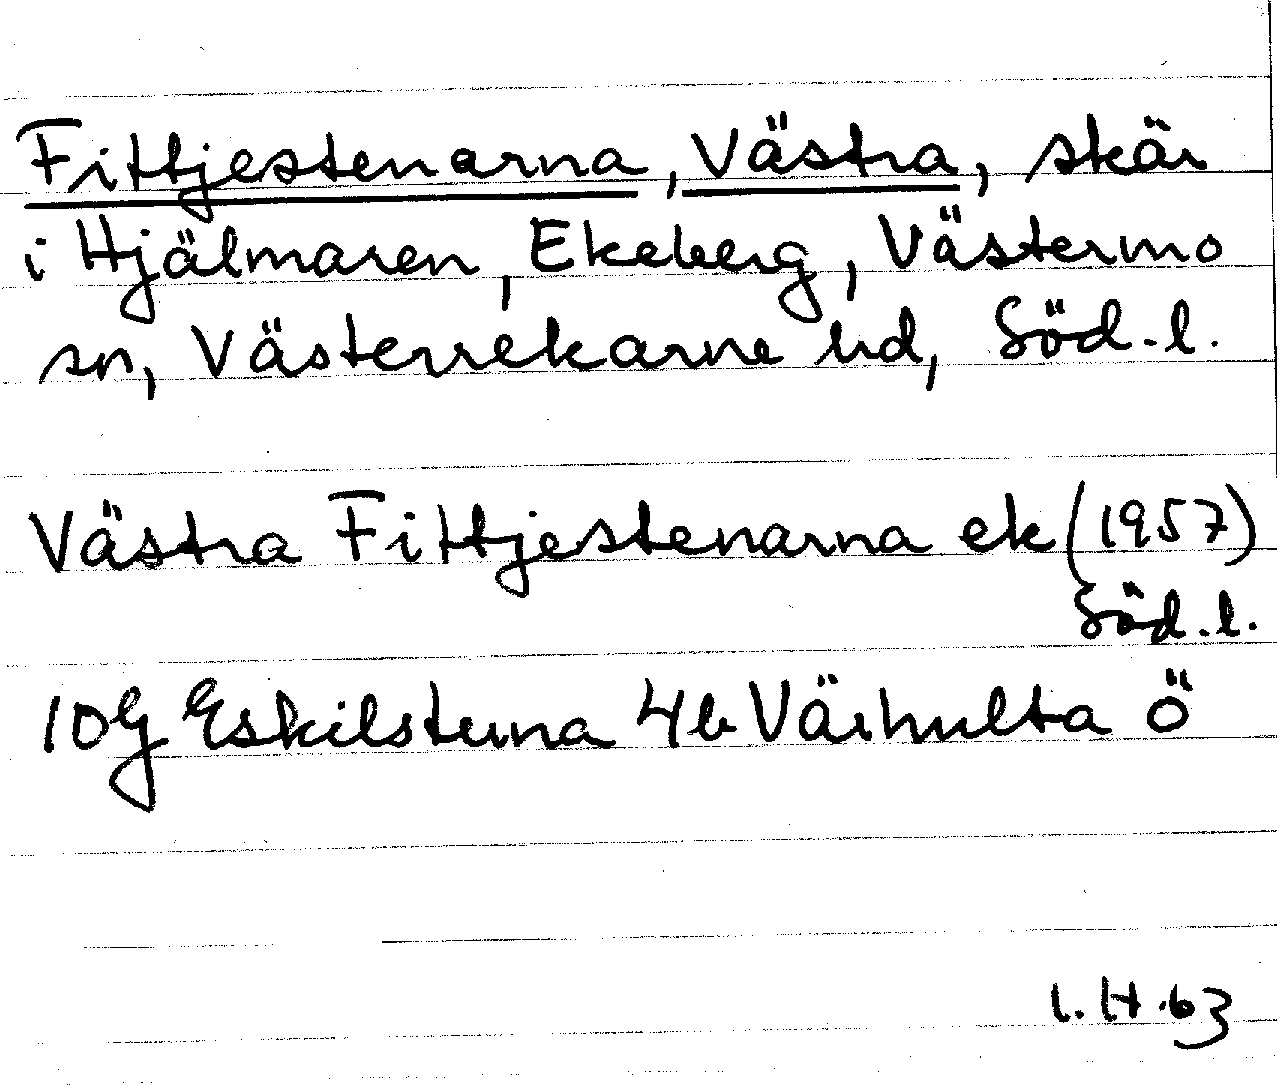 Fittjestenarna, Västra, skär
i Hjälmaren, Ekeberg, Västermo
sn, Västerrekarne hd, Söd.l.
Västra Fittjestenarna ek (1957)
Söd.l.
10G Eskilstuna 4b Värhulta ö
I.H.63